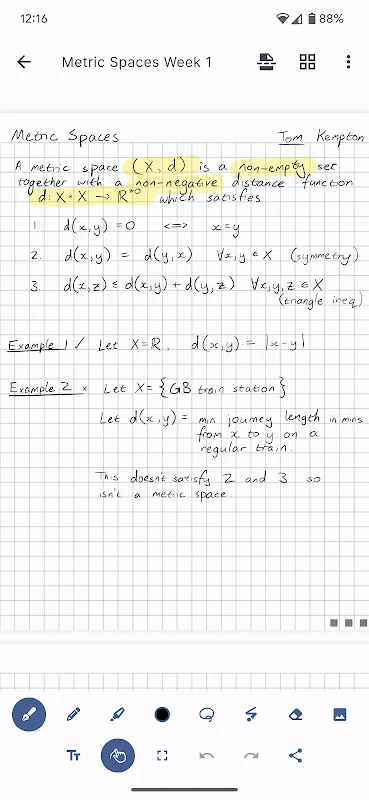 12:16
88%
Metric Spaces Week 1
Metric Spaces Tom Kempton
A metric space (X, d) is a non-empty set
together with a non-negative distance function
d: X × X → R≥0 which satisfies
1. d(x,y) = 0 <=> x=y
2. d(x,y) = d(y,x) ∀x,y ∈ X (symmetry)
3. d(x,z) ≤ d(x,y) + d(y,z) ∀x,y,z ∈ X
(triangle ineq)
Example 1 ✓ Let X=ℝ, d(x,y) = |x-y|
Example 2 × Let X = {GB train station}
Let d(x,y) = min journey length in mins
from x to y on a
regular train.
This doesn't satisfy 2 and 3 so
isn't a metric space.
Tт